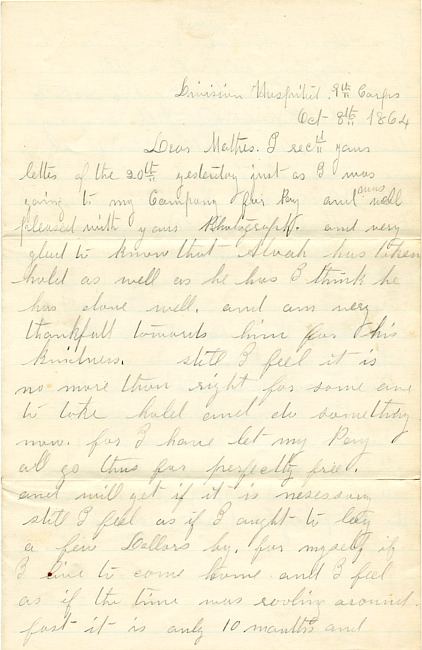 Division Hospital. 9th Corps
Oct 8th 1864
Dear Mother. I recd yours
letter of the 20th yesterday just as I was
going to my Company for Pay and was well
pleased with yours Photograph. and very
glad to know that Alvah has taken
hold as well as he has I think he
has done well. and am very
thankfull towards him for his
kindness. still I feel it is
no more than right for some one
to take hold and do something
now. for I have let my Pay
all go thus far perfectly free.
and will yet if it is nesessary
still I feel as if I ought to lay
a few Dollars by. for myself if
I live to come home and I feel
as if the time was rooling around
fast it is only 10 months and